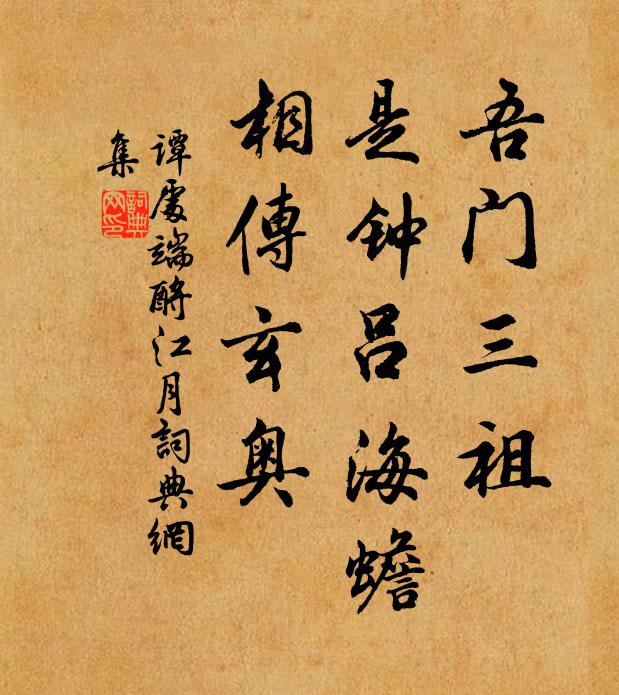 吾门三祖
是钟吕海蟾
相傳玄奥
譚處端酹江月詞典網
集
詞典網印